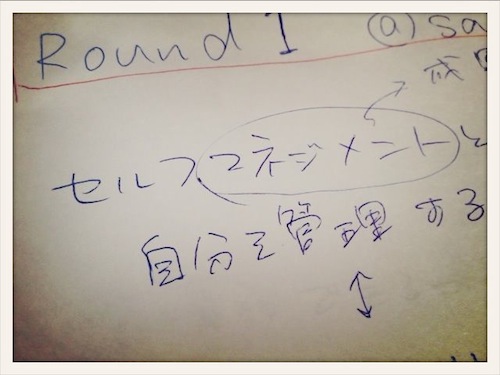 Round 1 @ sa
成
セルフマネジメントと
自分を管理する